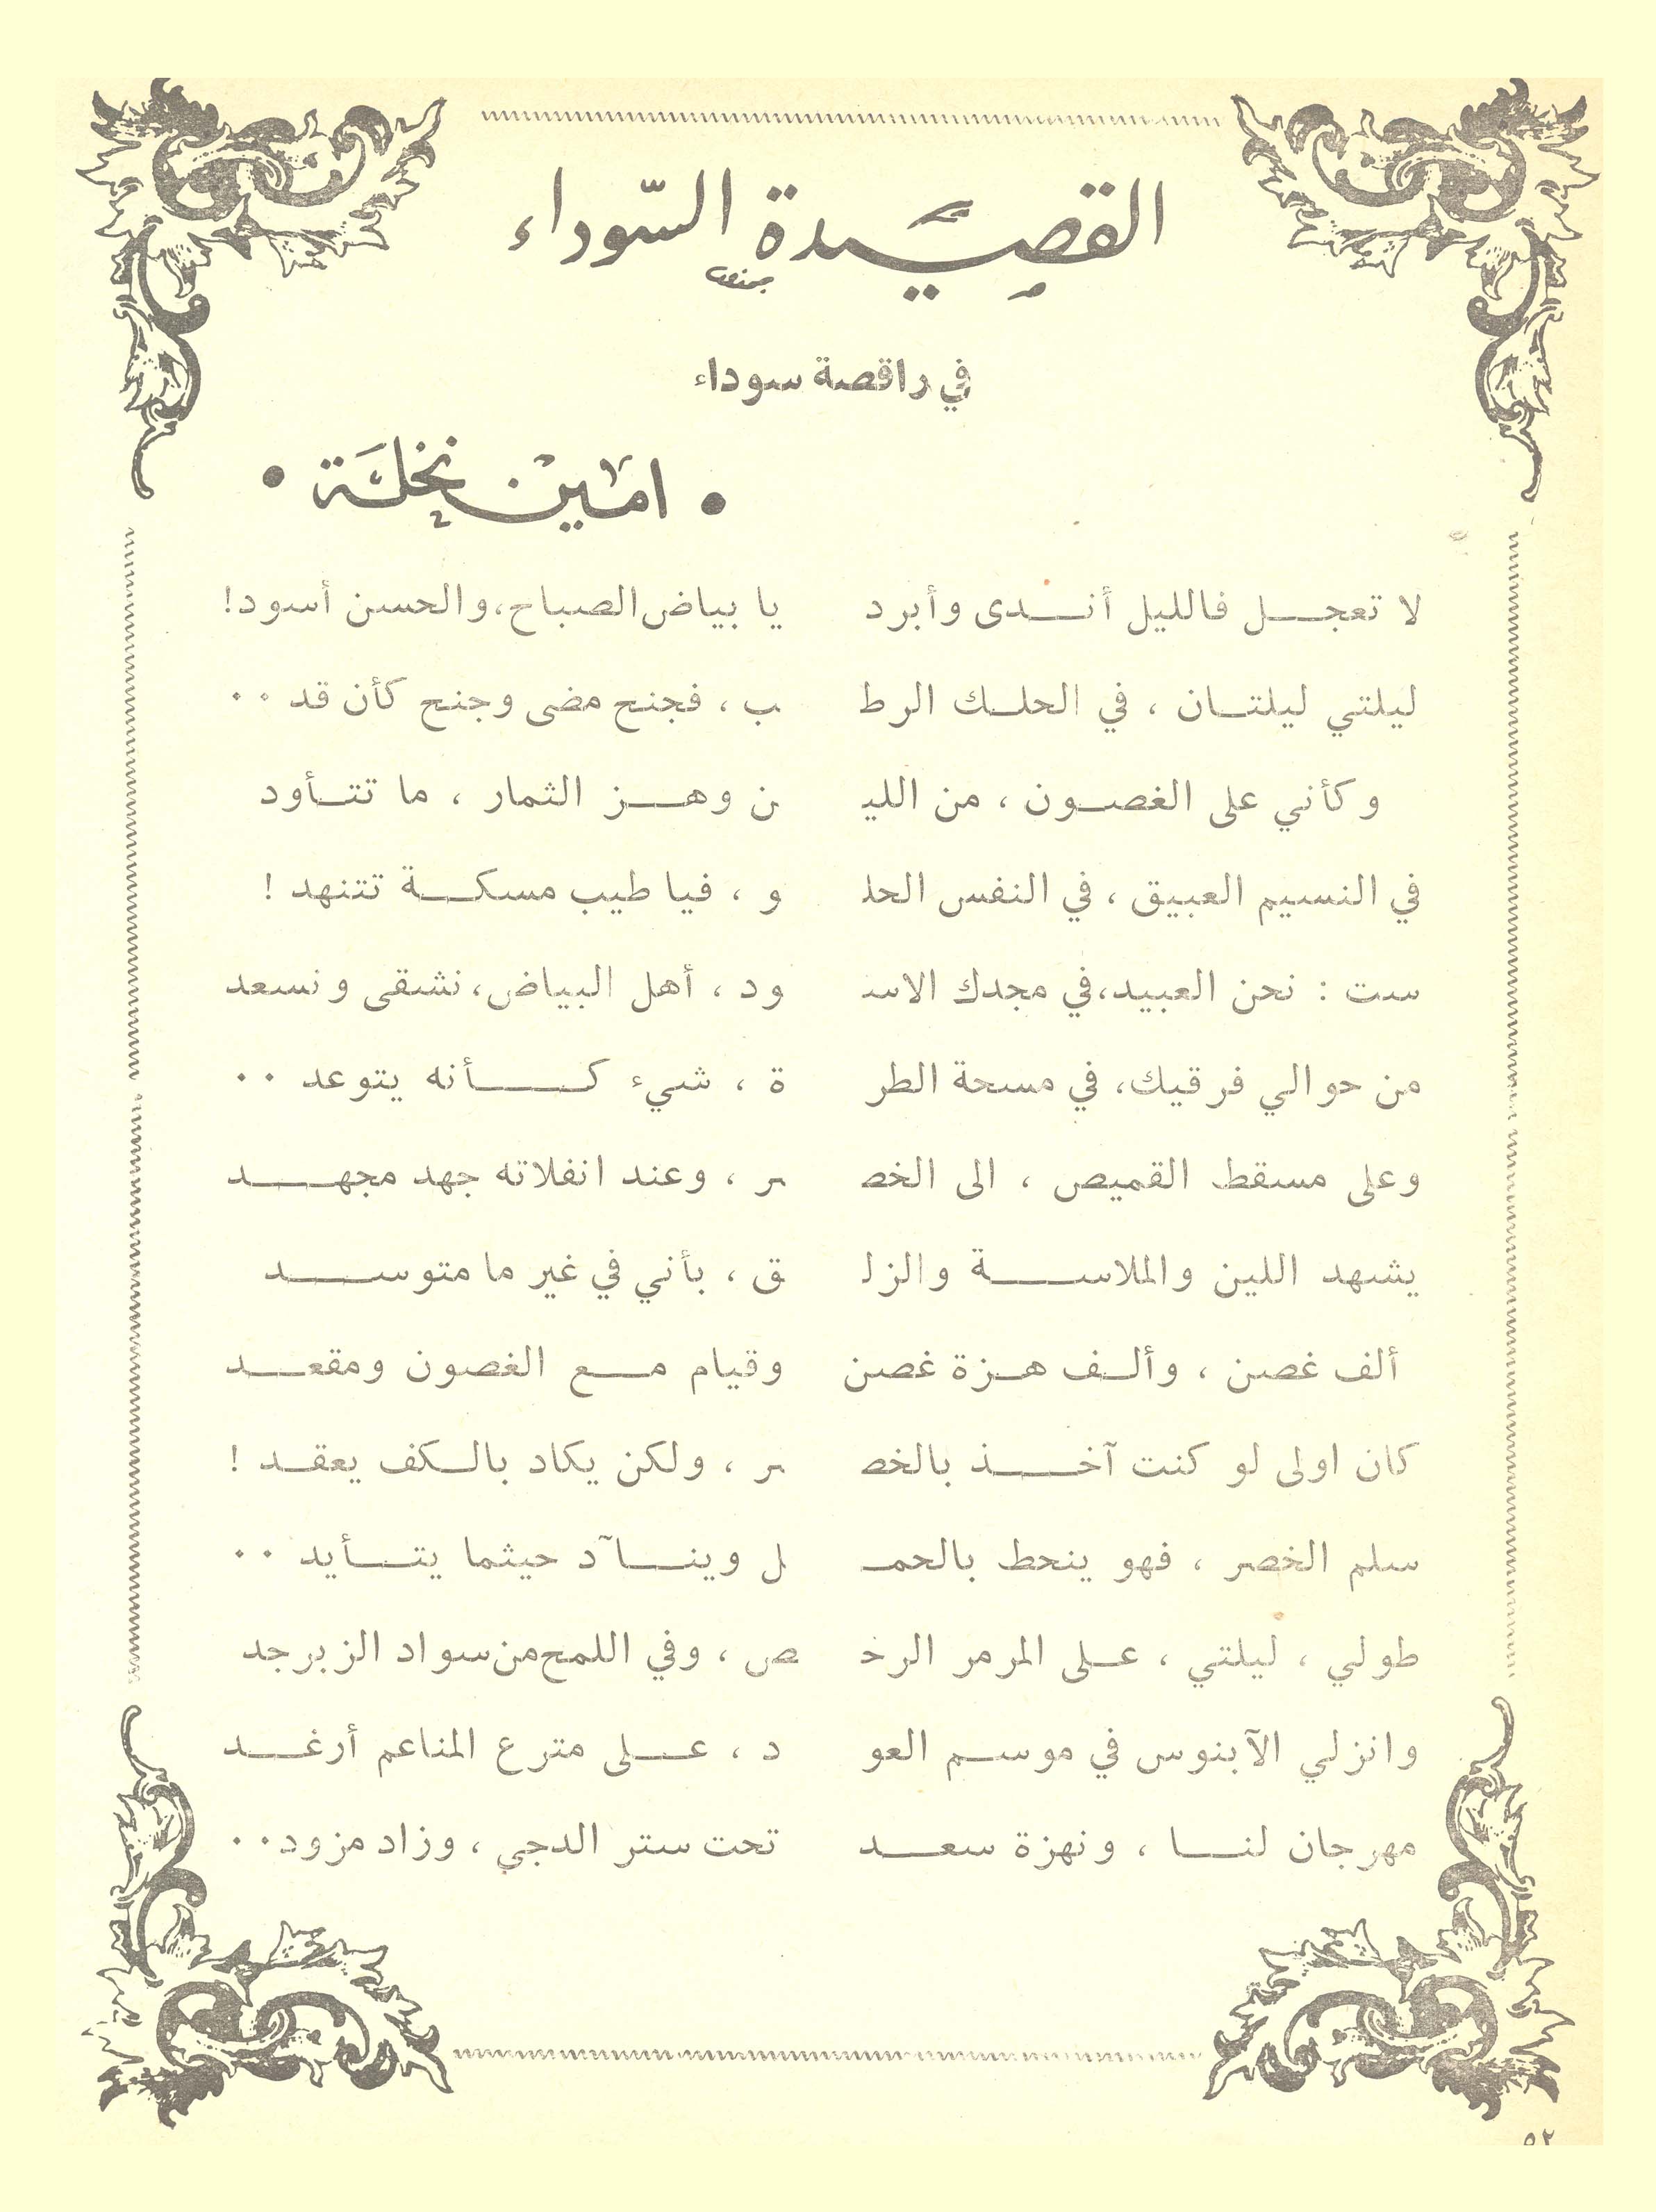 القصيدة السوداء
في راقصة سوداء
• امين نخلة •
لا تعجل فالليل أندى وأبرد يا بياض الصباح، والحسن أسود!
ليلتي ليلتان ، في الحلك الرط ب ، فجنح مضى وجنح كأن قد ..
وكأني على الغصون ، من اللي ن وهز الثمار ، ما تتأود
في النسيم العبيق ، في النفس الحل و ، فيا طيب مسكة تتنهد !
ست : نحن العبيد، في مجدك الاس ود ، أهل البياض، نشقى ونسعد
من حوالي فرقيك، في مسحة الطر ة ، شيء كأنه يتوعد ..
وعلى مسقط القميص ، الى الخص ر ، وعند انفلاته جهد مجهد
يشهد اللين والملاسة والزل ق ، بأني في غير ما متوسد
ألف غصن ، وألف هزة غصن وقيام مع الغصون ومقعد
كان اولى لو كنت آخذ بالخص ر ، ولكن يكاد بالكف يعقد !
سلم الخصر ، فهو ينحط بالحم ل وينآد حيثما يتأيد ..
طولي ، ليلتي ، على المرمر الرخ ص ، وفي اللمح من سواد الزبرجد
وانزلي الآبنوس في موسم العو د ، على مترع المناعم أرغد
مهرجان لنا ، ونهزة سعد تحت ستر الدجي ، وزاد مزود..
٥٢